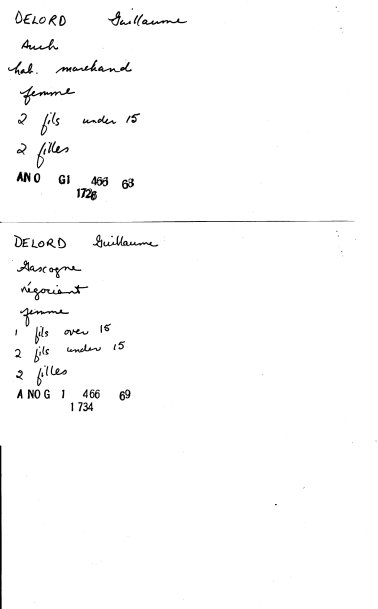 DELORD Guillaume
Auch
hab. marchand
femme
2 fils under 15
2 filles
ANO G1 466 68
1726
DELORD Guillaume
Gascogne
négociant
femme
1 fils over 15
2 fils under 15
2 filles
A NO G 1 466 69
1734